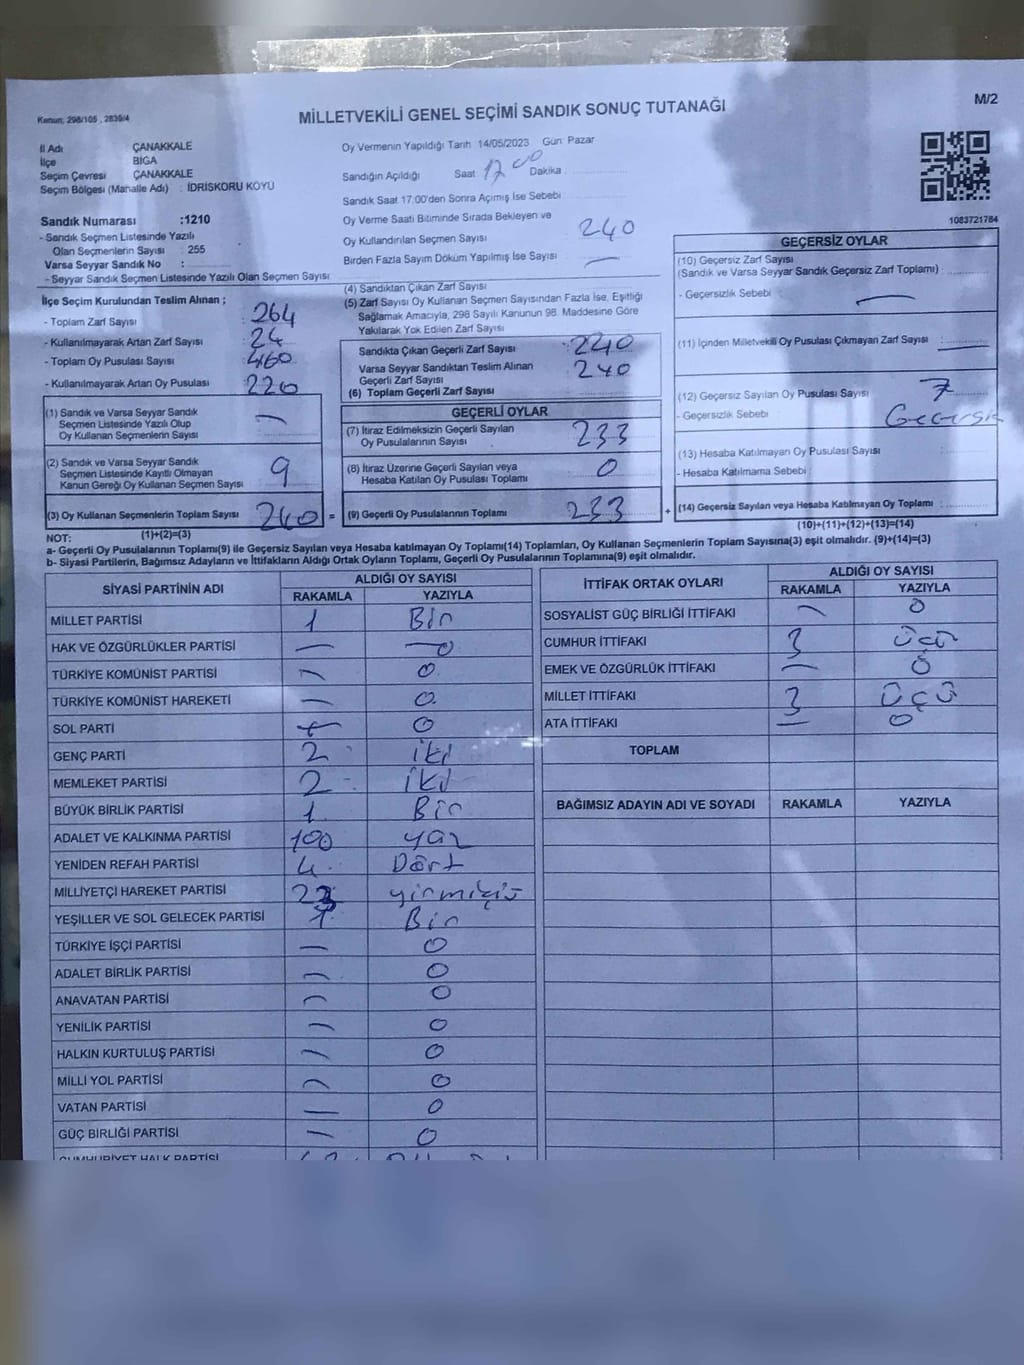 Kanun; 298/105 , 2839/4
MİLLETVEKİLİ GENEL SEÇİMİ SANDIK SONUÇ TUTANAĞI
M/2
İl Adı ÇANAKKALE
İlçe BİGA
Seçim Çevresi ÇANAKKALE
Seçim Bölgesi (Mahalle Adı) : İDRİSKORU KÖYÜ
Sandık Numarası :1210
- Sandık Seçmen Listesinde Yazılı
Olan Seçmenlerin Sayısı : 255
Varsa Seyyar Sandık No :
- Seyyar Sandık Seçmen Listesinde Yazılı Olan Seçmen Sayısı:
Oy Vermenin Yapıldığı Tarih 14/05/2023 Gün: Pazar
Sandığın Açıldığı Saat 17 00 Dakika
Sandık Saat 17.00'den Sonra Açımış İse Sebebi
Oy Verme Saati Bitiminde Sırada Bekleyen ve
Oy Kullandırılan Seçmen Sayısı 240
Birden Fazla Sayım Döküm Yapılmış İse Sayısı —
1083721784
İlçe Seçim Kurulundan Teslim Alınan ;
- Toplam Zarf Sayısı 264
- Kullanılmayarak Artan Zarf Sayısı : 24
- Toplam Oy Pusulası Sayısı 460
- Kullanılmayarak Artan Oy Pusulası 220
(1) Sandık ve Varsa Seyyar Sandık
Seçmen Listesinde Yazılı Olup
Oy Kullanan Seçmenlerin Sayısı —
(2) Sandık ve Varsa Seyyar Sandık
Seçmen Listesinde Kayıtlı Olmayan
Kanun Gereği Oy Kullanan Seçmen Sayısı 9
(3) Oy Kullanan Seçmenlerin Toplam Sayısı 240 =
(4) Sandıktan Çıkan Zarf Sayısı
(5) Zarf Sayısı Oy Kullanan Seçmen Sayısından Fazla İse, Eşitliği
Sağlamak Amacıyla, 298 Sayılı Kanunun 98. Maddesine Göre
Yakılarak Yok Edilen Zarf Sayısı
Sandıkta Çıkan Geçerli Zarf Sayısı 240
Varsa Seyyar Sandıktan Teslim Alınan
Geçerli Zarf Sayısı 240
(6) Toplam Geçerli Zarf Sayısı
GEÇERLİ OYLAR
(7) İtiraz Edilmeksizin Geçerli Sayılan
Oy Pusulalarının Sayısı 233
(8) İtiraz Üzerine Geçerli Sayılan veya
Hesaba Katılan Oy Pusulası Toplamı 0
(9) Geçerli Oy Pusulalarının Toplamı 233 +
GEÇERSİZ OYLAR
(10) Geçersiz Zarf Sayısı
(Sandık ve Varsa Seyyar Sandık Geçersiz Zarf Toplamı) :
- Geçersizlik Sebebi : —
(11) İçinden Milletvekili Oy Pusulası Çıkmayan Zarf Sayısı : —
(12) Geçersiz Sayılan Oy Pusulası Sayısı : 7
- Geçersizlik Sebebi
(13) Hesaba Katılmayan Oy Pusulası Sayısı
- Hesaba Katılmama Sebebi
(14) Geçersiz Sayılan veya Hesaba Katılmayan Oy Toplamı :
NOT: (1)+(2)=(3)
(10)+(11)+(12)+(13)=(14)
a- Geçerli Oy Pusulalarının Toplamı(9) ile Geçersiz Sayılan veya Hesaba katılmayan Oy Toplamı(14) Toplamları, Oy Kullanan Seçmenlerin Toplam Sayısına(3) eşit olmalıdır. (9)+(14)=(3)
b- Siyasi Partilerin, Bağımsız Adayların ve İttifakların Aldığı Ortak Oyların Toplamı, Geçerli Oy Pusulalarının Toplamına(9) eşit olmalıdır.
SİYASİ PARTİNİN ADI ALDIĞI OY SAYISI
RAKAMLA YAZIYLA
MİLLET PARTİSİ 1 Bir
HAK VE ÖZGÜRLÜKLER PARTİSİ — 0
TÜRKİYE KOMÜNİST PARTİSİ — 0
TÜRKİYE KOMÜNİST HAREKETİ — 0
SOL PARTİ — 0
GENÇ PARTİ 2 iki
MEMLEKET PARTİSİ 2 iki
BÜYÜK BİRLİK PARTİSİ 1 Bir
ADALET VE KALKINMA PARTİSİ 100 yüz
YENİDEN REFAH PARTİSİ 4 Dört
MİLLİYETÇİ HAREKET PARTİSİ 23 yirmiüç
YEŞİLLER VE SOL GELECEK PARTİSİ 1 Bir
TÜRKİYE İŞÇİ PARTİSİ — 0
ADALET BİRLİK PARTİSİ — 0
ANAVATAN PARTİSİ — 0
YENİLİK PARTİSİ — 0
HALKIN KURTULUŞ PARTİSİ — 0
MİLLİ YOL PARTİSİ — 0
VATAN PARTİSİ — 0
GÜÇ BİRLİĞİ PARTİSİ — 0
CUMHURİYET HALK PARTİSİ
İTTİFAK ORTAK OYLARI ALDIĞI OY SAYISI
RAKAMLA YAZIYLA
SOSYALİST GÜÇ BİRLİĞİ İTTİFAKI — 0
CUMHUR İTTİFAKI 3 üçü
EMEK VE ÖZGÜRLÜK İTTİFAKI — 0
MİLLET İTTİFAKI 3 üçü
ATA İTTİFAKI — 0
TOPLAM
BAĞIMSIZ ADAYIN ADI VE SOYADI RAKAMLA YAZIYLA